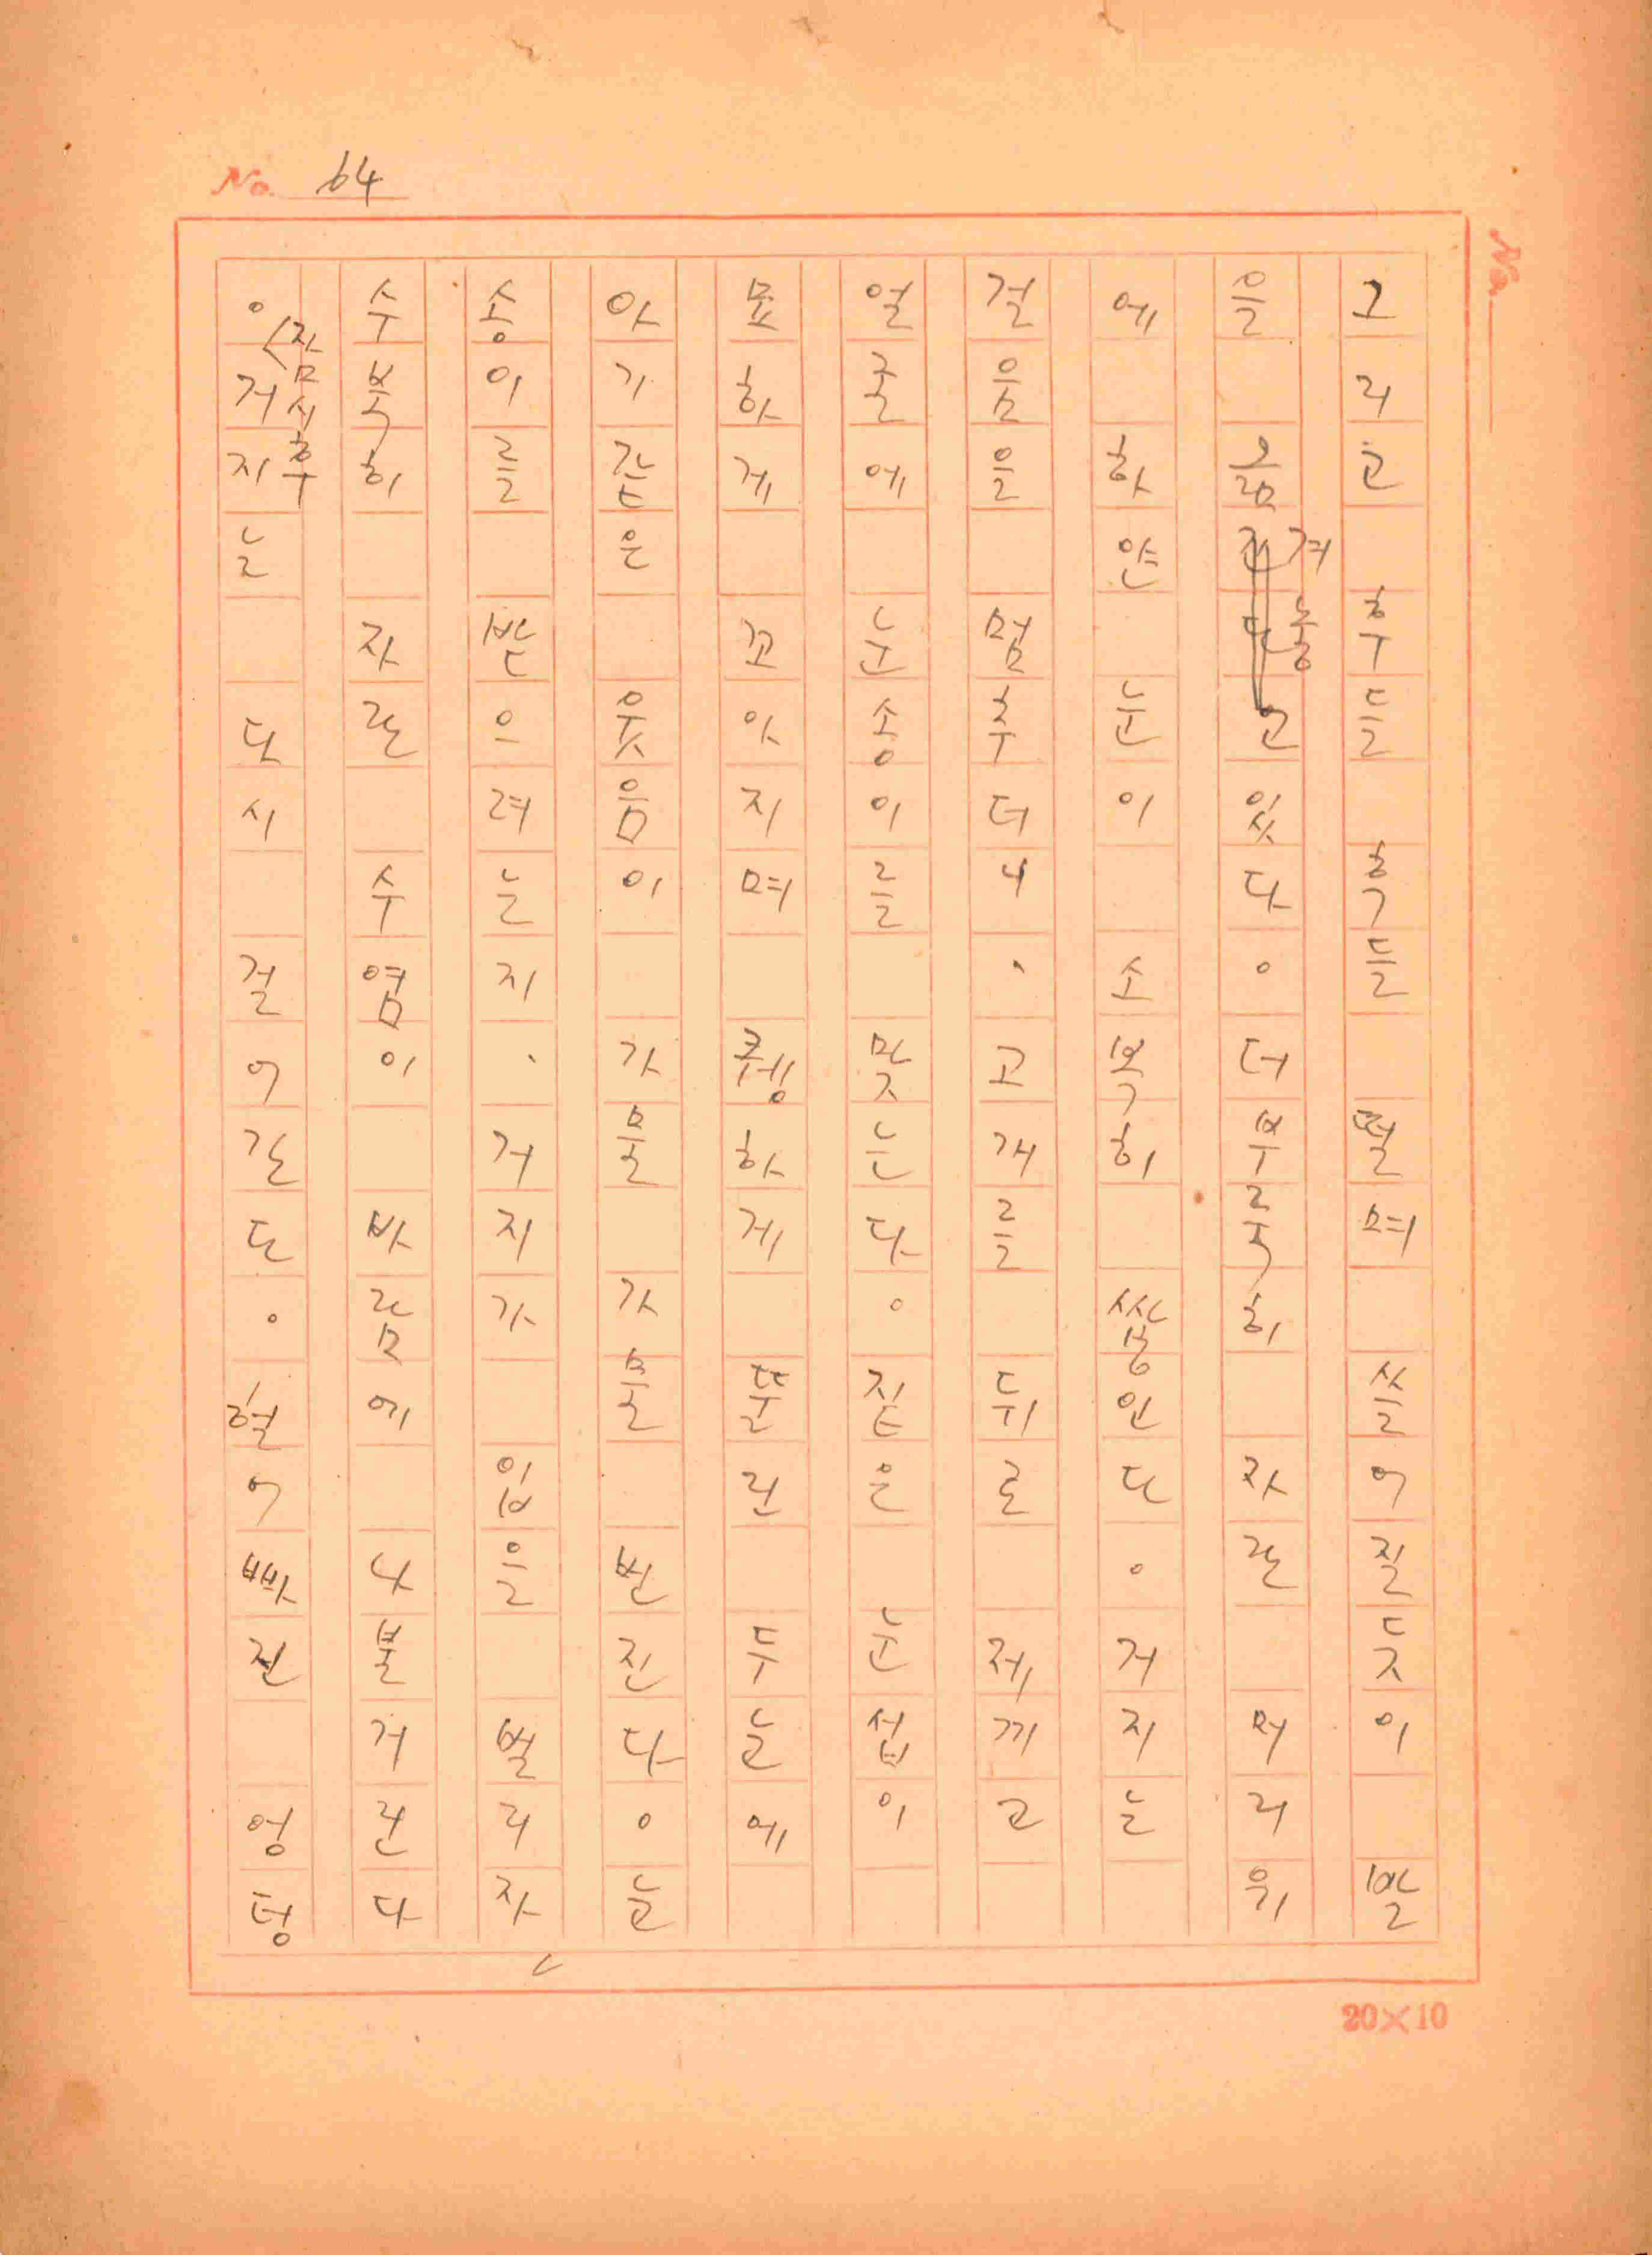 No. 64
그리곤 후들 훅들 떨며 쓸어질듯이 발
을 옮겨놓곤있다. 더부룩히 자란 머리위
에 하얀 눈이 소복히 쌓인다. 거지는
걸음을 멈추더니, 고개를 뒤로 제끼고
얼굴에 눈송이를 맞는다. 짙은 눈섭이
묘하게 꼬아지며 퀭하게 뚫린 두눈에
아기같은 웃음이 가물 가물 번진다. 눈
송이를 받으려는지, 거지가 입을 벌리자
수북히 자란 수염이 바람에 나불거린다
. 잠시후 거지는 다시 걸어간다. 헐어빠진 엉덩
No.
20×10